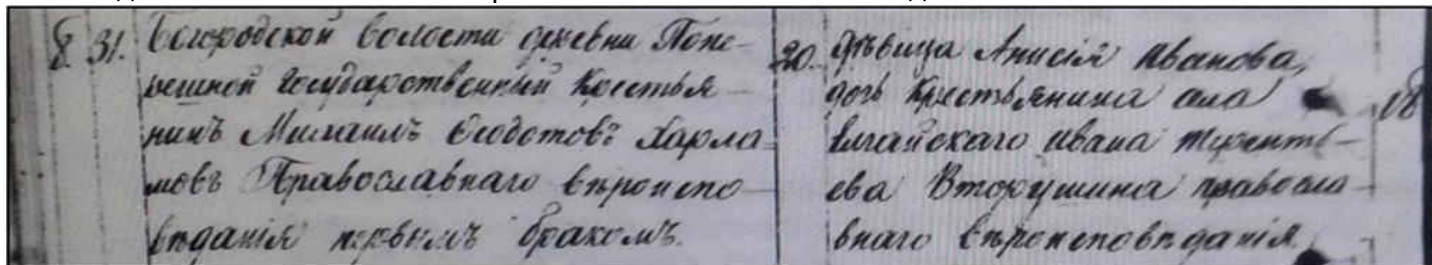 8. 31. Богородской волости деревни Попе-
речной государственный крестья-
нинъ Михаилъ Ѳеодотовъ Харла-
мовъ Православнаго вѣроиспо-
вѣданія первымъ бракомъ.
20. Дѣвица Анисія Иванова,
дочь крестьянина села
Ивана Терентье-
ева Вторушина правосла-
внаго вѣроисповѣданія
18